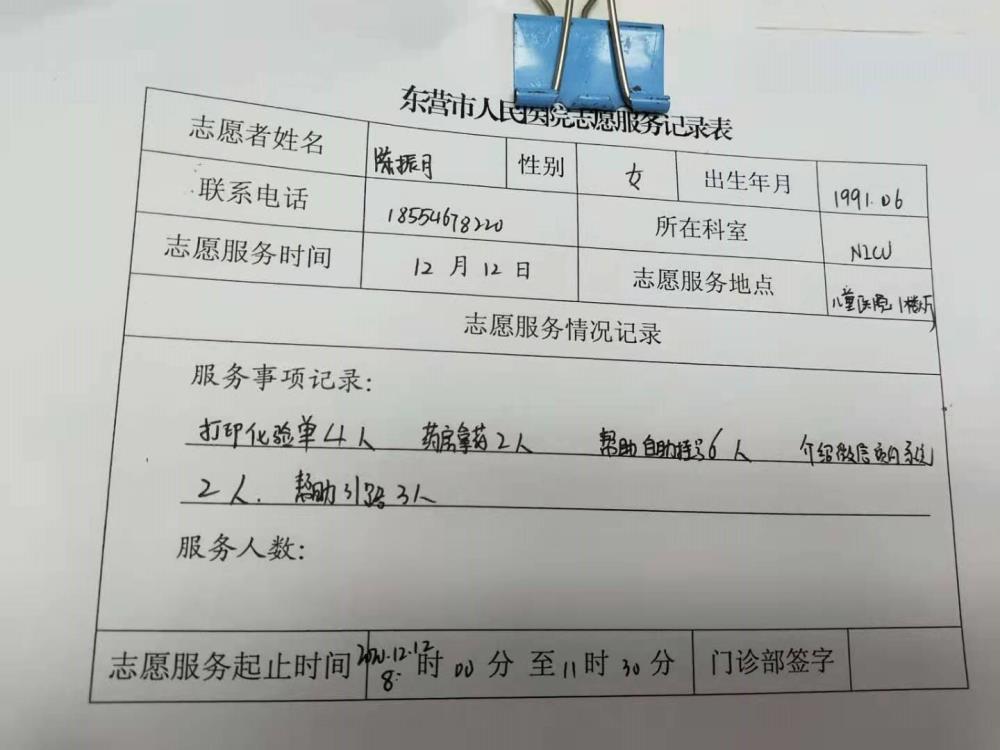 东营市人民医院志愿服务记录表
志愿者姓名 陈振月 性别 女 出生年月 1991.06
联系电话 18554678220 所在科室 NICU
志愿服务时间 12月12日 志愿服务地点 儿童医院1楼大厅
志愿服务情况记录
服务事项记录:
打印化验单4人 药房拿药2人 帮助自助挂号6人 介绍微信预约系统
2人. 帮助引路3人
服务人数:
志愿服务起止时间 2020.12.12 8:时00分至11时30分 门诊部签字